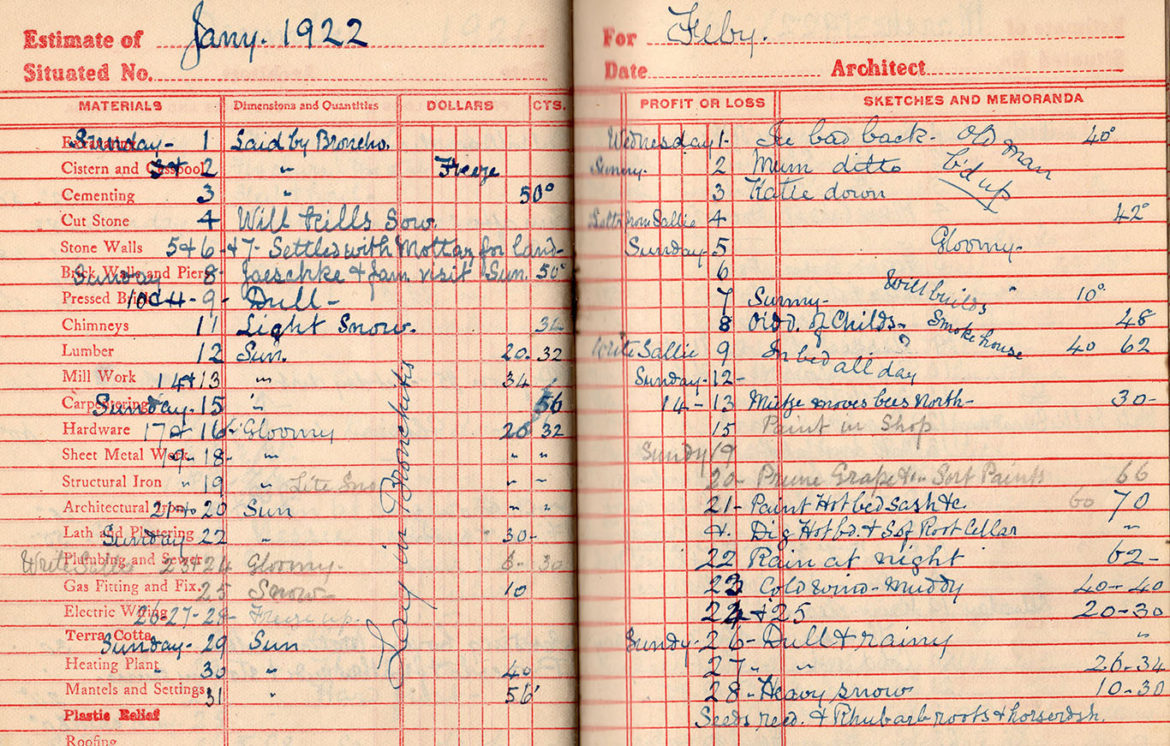 Estimate of Jany. 1922
Situated No.
MATERIALS Dimensions and Quantities DOLLARS CTS.
Sunday - 1 Laid by Broncho.
Cistern and Cesspool 2 " Freeze
Cementing 3 " 50°
Cut Stone 4 Will Kills Sow.
Stone Walls 5+6 +7- Settles with for land-
Brick Walls and Piers Sunday 8- Jaeschke & Jam visit Sun. 50°
Pressed Brick 10 9- Dull-
Chimneys 11 Light Snow. 34
Lumber 12 Sun. 20- 32
Mill Work 14+13 " 34
Carpentering Sunday-15 " 56
Hardware 17+16 Gloomy 20 32
Sheet Metal Work 19-18- " " "
Structural Iron " 19 " Lite Sno " "
Architectural Iron 21+20 Sun " "
Lath and Plastering Sunday 22 " 30-
Plumbing and Sewer Write Sallie 23+24 Gloomy- 6- 30
Gas Fitting and Fix. 25 Snow- 10
Electric Wiring 26-27-28- Freeze up.
Terra Cotta Sunday-29 Sun
Heating Plant 30 " 40
Mantels and Settings 31 " 56
Plastic Relief
Roofing
Lay in Bronchitis
For Feby.
Date Architect
PROFIT OR LOSS SKETCHES AND MEMORANDA
Wednesday 1- Ice bad back- Old man 40°
Sunny- 2 Mum ditto b'd up
3 Katie down
Lettr from Sallie 4 42°
Sunday- 5 Gloomy-
6
Will builds "
7 Sunny- 10°
8 Smoke house 48
Write Sallie 9 In bed all day 40 62
Sunday-12-
14-13 moves bees North- 30-
15 Paint in Shop
Sundy 19
20- Prune Grape Sort Paints 66
21- Paint Hotbed Sash &c 60 70
Dig Hotbd. & Root Cellar "
22 Rain at night 62-
23 Cold wind- Muddy 40-40
24+25 20-30
Sundy-26- Dull & rainy "
27- " " 26-34
28- Heavy snow 10-30
Seeds recd. & Rhubarb roots & horserdsh.